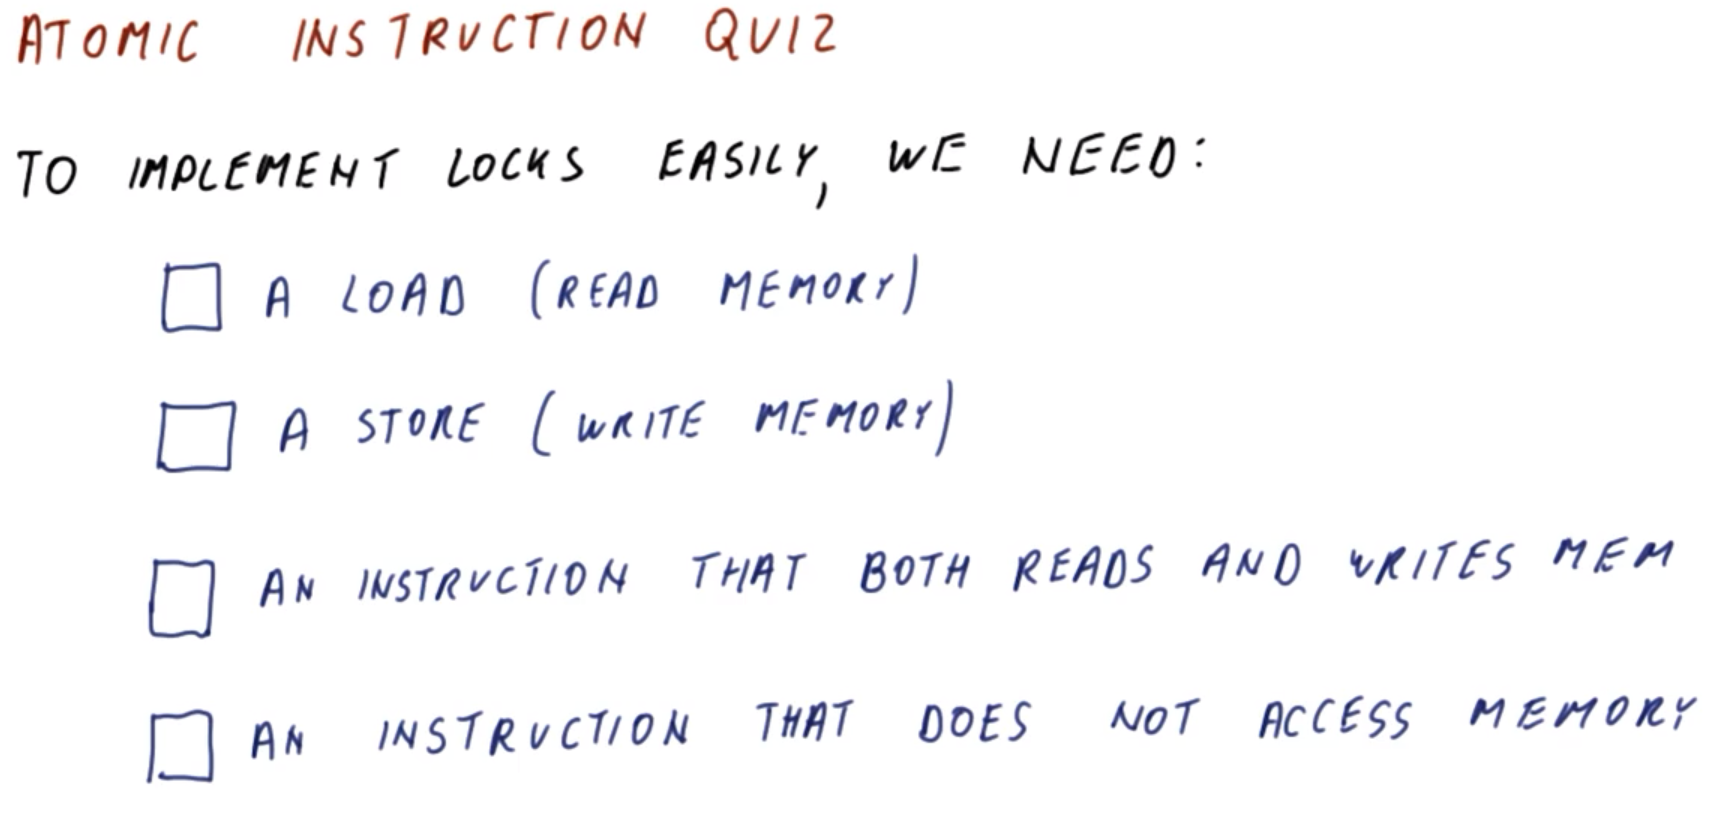 ATOMIC INSTRUCTION QUIZ
TO IMPLEMENT LOCKS EASILY, WE NEED:
A LOAD (READ MEMORY)
A STORE (WRITE MEMORY)
AN INSTRUCTION THAT BOTH READS AND WRITES MEM
AN INSTRUCTION THAT DOES NOT ACCESS MEMORY